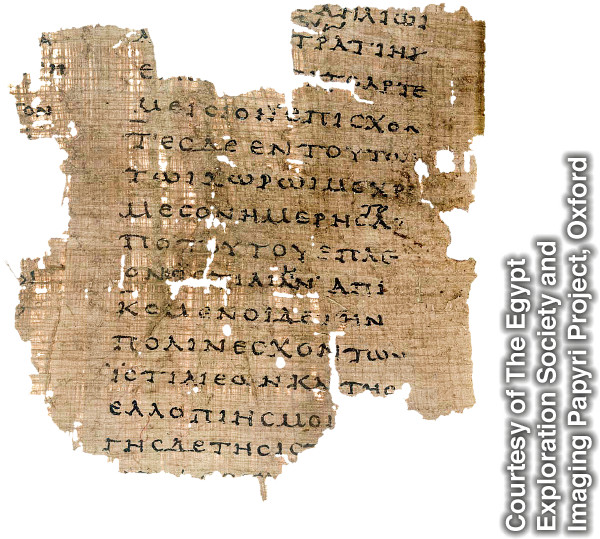 ΑΗΛΙΩΙ
ΤΡΑΤΙΗ
ΑΡΤΕ
ΜΕΙϹΙΟΝΕΠΙϹΧΟΝ
ΤΕϹΔΕΕΝΤΟΥΤΩ
ΤΩΙΧΩΡΩΙΜΕΧΡ
ΤΟ
ΜΕϹΟΝΗΜΕΡΗϹΑ
ΠΟΤΟΥΤΟΥΕΠΛΕ
ΟΝ ϹΤΙΑΙΑΝ ΑΠΙ
ΚΟΜΕΝΟΙΔΕΤΗΝ
ΠΟΛΙΝΕϹΧΟΝΤΩΝ
ΙϹΤΙΑΙΕΩΝΚΑΙΤΗϹ
ΕΛΛΟΠΙΗϹΜΟΙ
ΓΗϹΔΕΤΗϹΙϹ
Courtesy of The Egypt
Exploration Society and
Imaging Papyri Project, Oxford